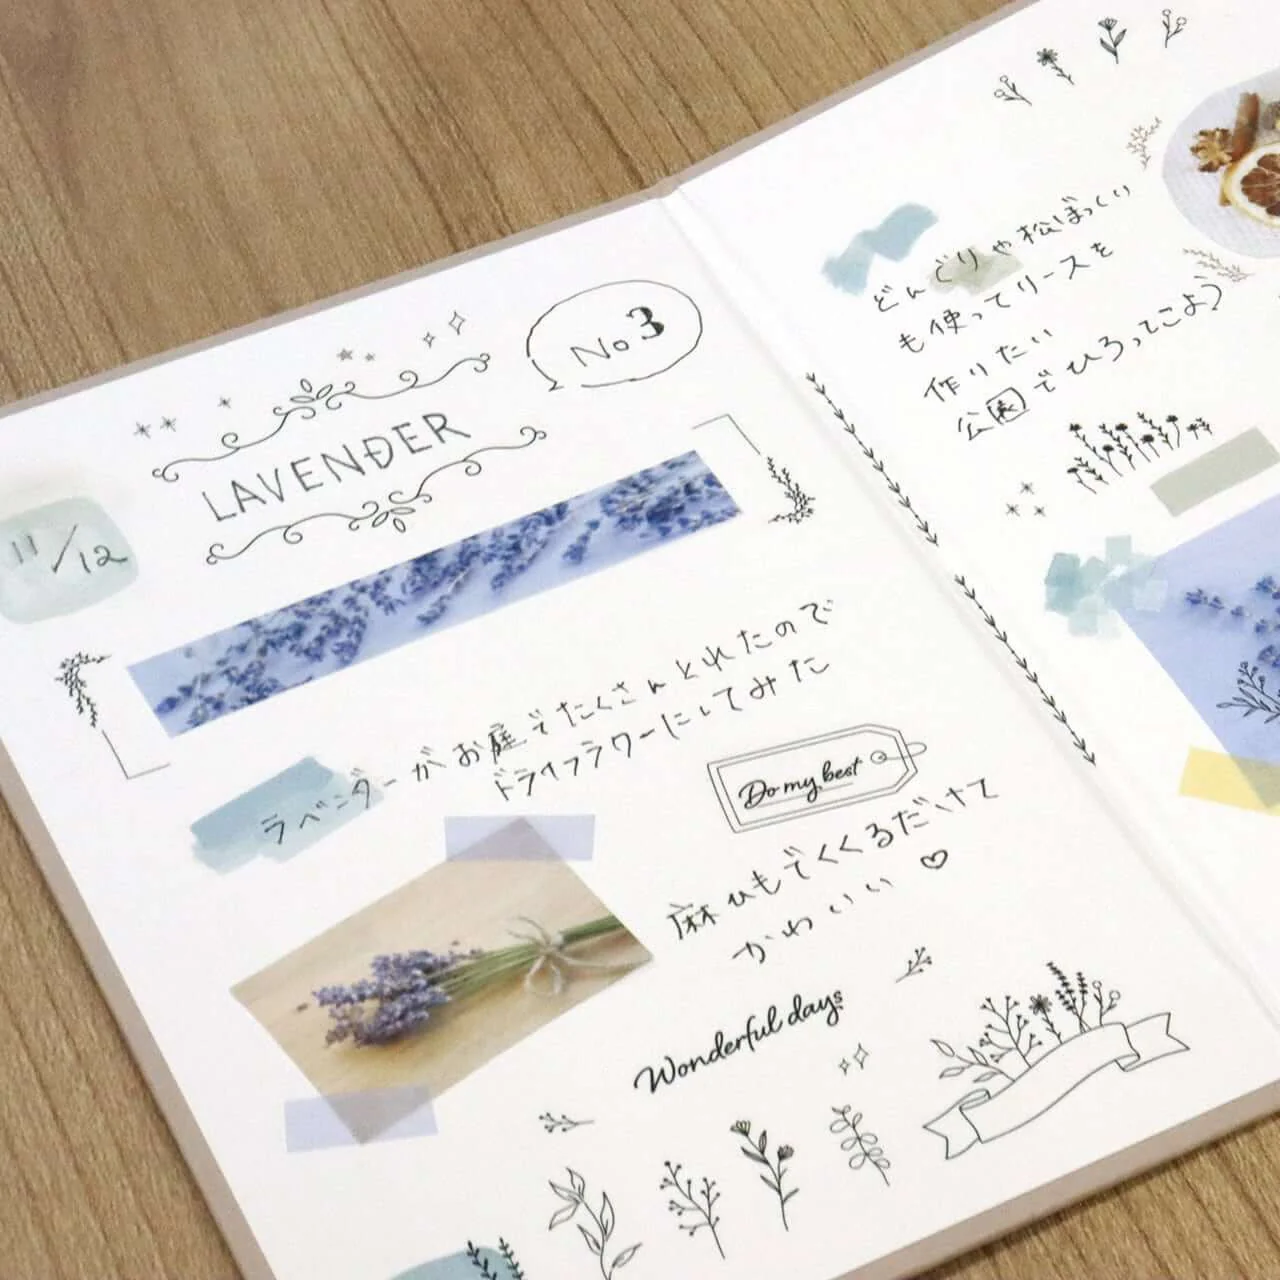 No 3
LAVENDER
11/12
ラベンダーがお庭でたくさんとれたので
ドライフラワーにしてみた
Do my best
麻ひもでくくるだけで
かわいい♡
Wonderful days
どんぐりや松ぼっくり
も使ってリースを
作りたい
公園でひろってこよう